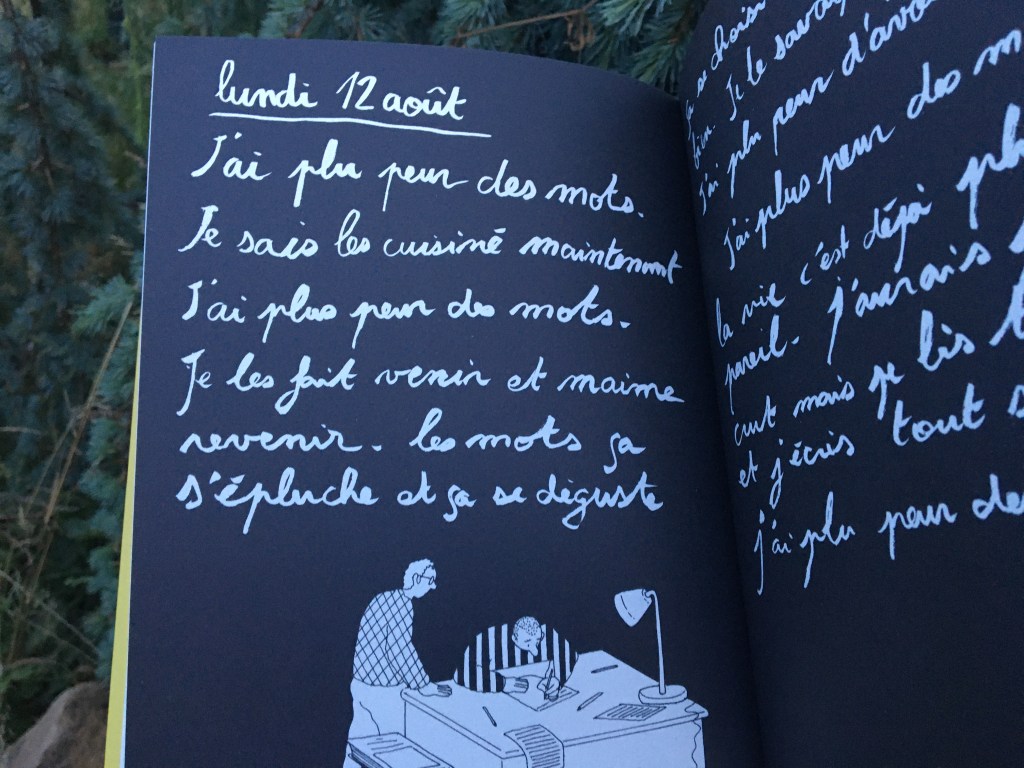 lundi 12 août
J'ai plu peur des mots.
Je sais les cuisiné maintenant
J'ai plus peur des mots.
Je les fait venir et maime
revenir. les mots ça
s'épluche et ça se déguste
se choisi
bien. Je le savai
J'ai plu peur d'avoi
J'ai plus peur des m
la vie c'est déjà plu
pareil. J'aurais
cut mais je lis t
et j'écris tout s
j'ai plu peur des